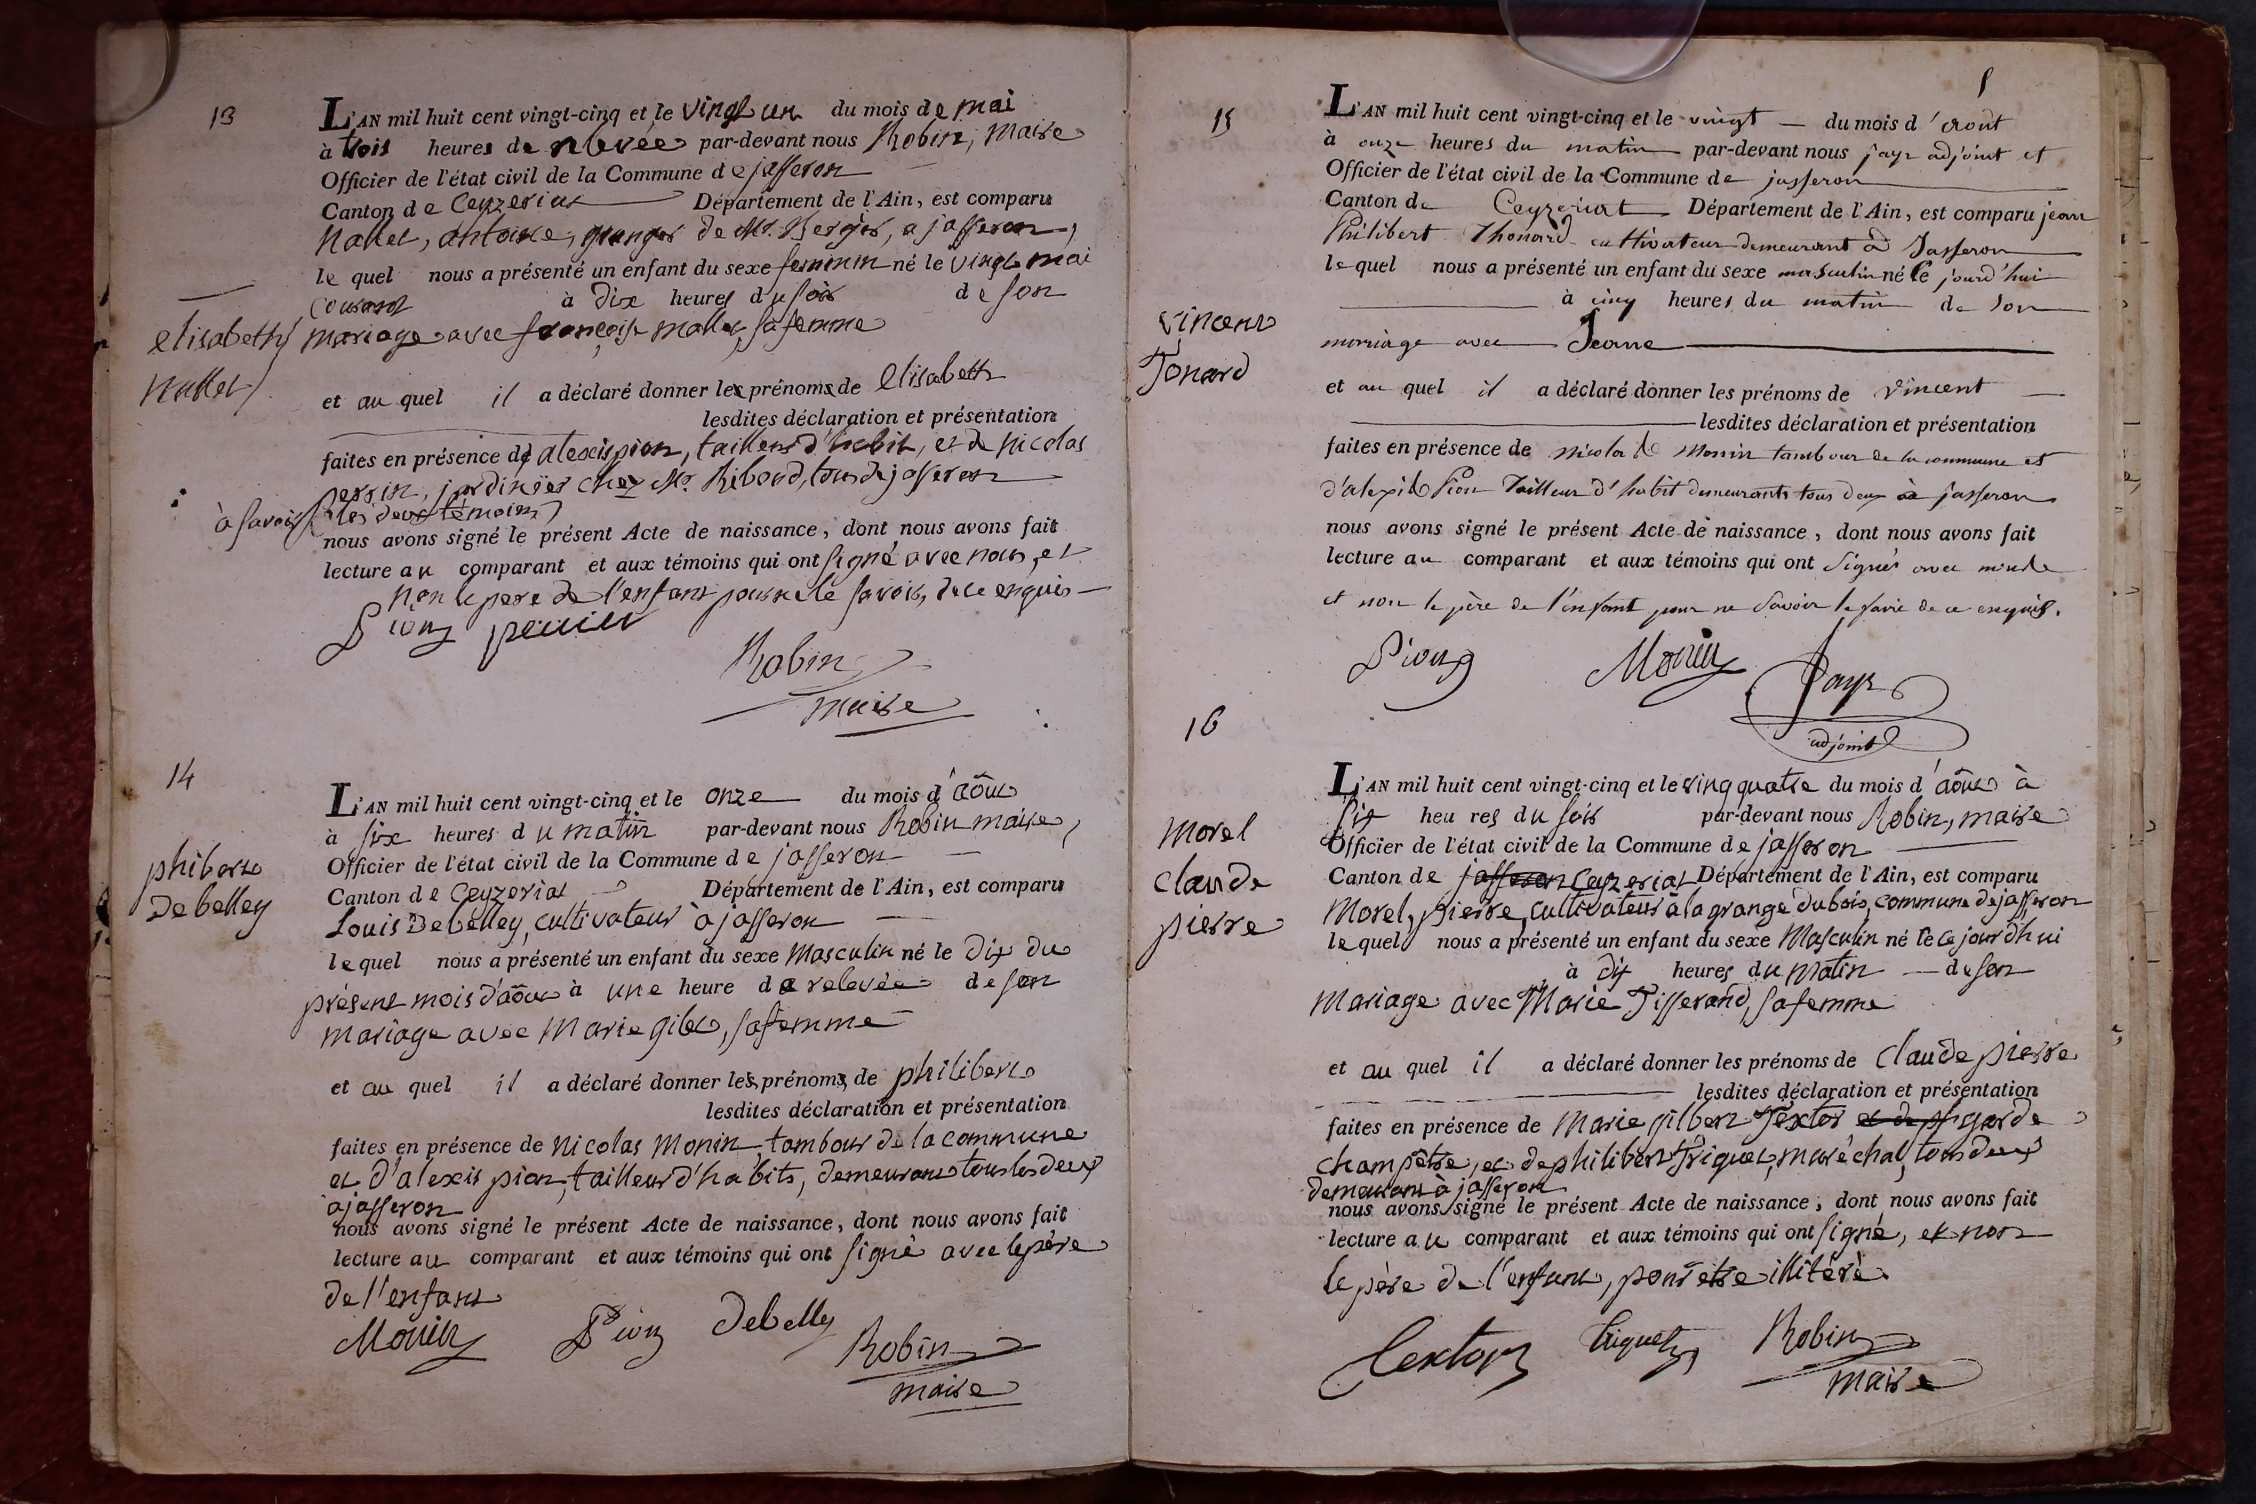 13
L'AN mil huit cent vingt-cinq et le vingt un du mois de mai
à trois heures de relevée par-devant nous Robin, Maire
Officier de l'état civil de la Commune de jasseron
Canton de Ceyzeriat Département de l'Ain, est comparu
Nallet, antoine, granger de Mr. Berger, a jasseron,
le quel nous a présenté un enfant du sexe feminin né le vingt mai
courant à dix heures du soir de son
elisabeth
Nallet
mariage avec françoise mallet, sa femme
et au quel il a déclaré donner les prénoms de elisabeth
lesdites déclaration et présentation
faites en présence de alexis pion, tailleur d'habit, et de Nicolas
perrin, jardinier chez Mr. Riboud, tous de jasseron
à savoir les deux témoins
nous avons signé le présent Acte de naissance, dont nous avons fait
lecture au comparant et aux témoins qui ont signé avec nous, et
non le pere de l'enfant pour ne le savoir, de ce enquis
Pion perrin
Robin
maire
14
L'AN mil huit cent vingt-cinq et le onze du mois d'aôut
à six heures du matin par-devant nous Robin maire,
Officier de l'état civil de la Commune de jasseron
Canton de Ceyzeriat Département de l'Ain, est comparu
phibert
Debelley
Louis Debelley, cultivateur à jasseron
le quel nous a présenté un enfant du sexe Masculin né le dix du
présent mois d'aôut à une heure de relevée de son
mariage avec Marie gilet, sa femme
et au quel il a déclaré donner les prénoms de philibert
lesdites déclaration et présentation
faites en présence de Nicolas Monin, tambour de la commune
et d'alexis pion, tailleur d'habits, demeurant tous les deux
à jasseron
nous avons signé le présent Acte de naissance, dont nous avons fait
lecture au comparant et aux témoins qui ont signé avec le père
de l'enfant
Monin Pion Debelley
Robin
maire
15
L'AN mil huit cent vingt-cinq et le vingt du mois d'Aout
à onze heures du matin par-devant nous jayr adjoint et
Officier de l'état civil de la Commune de jasseron
Canton de Ceyzeriat Département de l'Ain, est comparu jean
Philibert Thonard cultivateur demeurant à Jasseron
le quel nous a présenté un enfant du sexe masculin né le jourd'hui
à cinq heures du matin de son
vincent
Tonard
mariage avec Jeane
et au quel il a déclaré donner les prénoms de vincent
lesdites déclaration et présentation
faites en présence de Nicolas Monin tambour de la commune et
d'alexis Pion Tailleur d'habit demeurants tous deux à jasseron
nous avons signé le présent Acte de naissance, dont nous avons fait
lecture au comparant et aux témoins qui ont signés avec
et non le père de l'enfant pour ne savoir le faire de ce enquis.
Pion Monin Jayr
adjoint
16
L'AN mil huit cent vingt-cinq et le vinq quatre du mois d'aôut à
six heures du soir par-devant nous Robin, maire
Officier de l'état civil de la Commune de jasseron
Canton de jasseron Ceyzeriat Département de l'Ain, est comparu
Morel
claude
pierre
Morel, pierre, cultivateur à la grange du bois, commune de jasseron
le quel nous a présenté un enfant du sexe Masculin né le ce jourd'hui
à dix heures du matin de son
mariage avec Marie Tisserand, sa femme
et au quel il a déclaré donner les prénoms de claude pierre
lesdites déclaration et présentation
faites en présence de Marie gilbert Textor et de ph garde
champêtre, et de philibert Triquet, maréchal, tous deux
demeurant à jasseron
nous avons signé le présent Acte de naissance, dont nous avons fait
lecture au comparant et aux témoins qui ont signé, et non
le père de l'enfant, pour être illitéré.
Textor Triquet Robin
maire